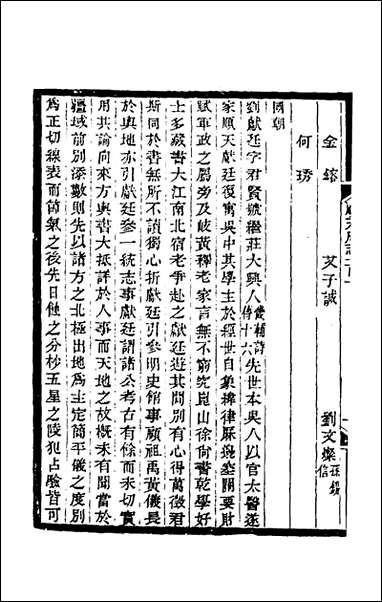 金鎔　艾子誠　劉文燦孫鎔 信
何琇
國朝
劉獻廷字君賢號繼莊大興人畿輔詩傳十六先世本吳人以官太醫遂
家順天獻廷復寓吳中其學主於經世自象緯律厤邊塞關要財
賦軍政之屬旁及岐黃釋老家言無不窮究崑山徐尚書乾學好
士多藏書大江南北宿老爭赴之獻廷遊其間別有心得萬徵君
斯同於書無所不讀獨心折獻廷引參明史館事顧祖禹黃儀長
於輿地亦引獻廷參一統志事獻廷謂諸公考古有餘而未切實
用其論向來方輿書大抵詳於人事而天地之故概未有聞當於
疆域前別添數則先以諸方之北極出地爲主定簡平儀之度別
爲正切線表而節氣之後先日蝕之分秒五星之陵犯占驗皆可